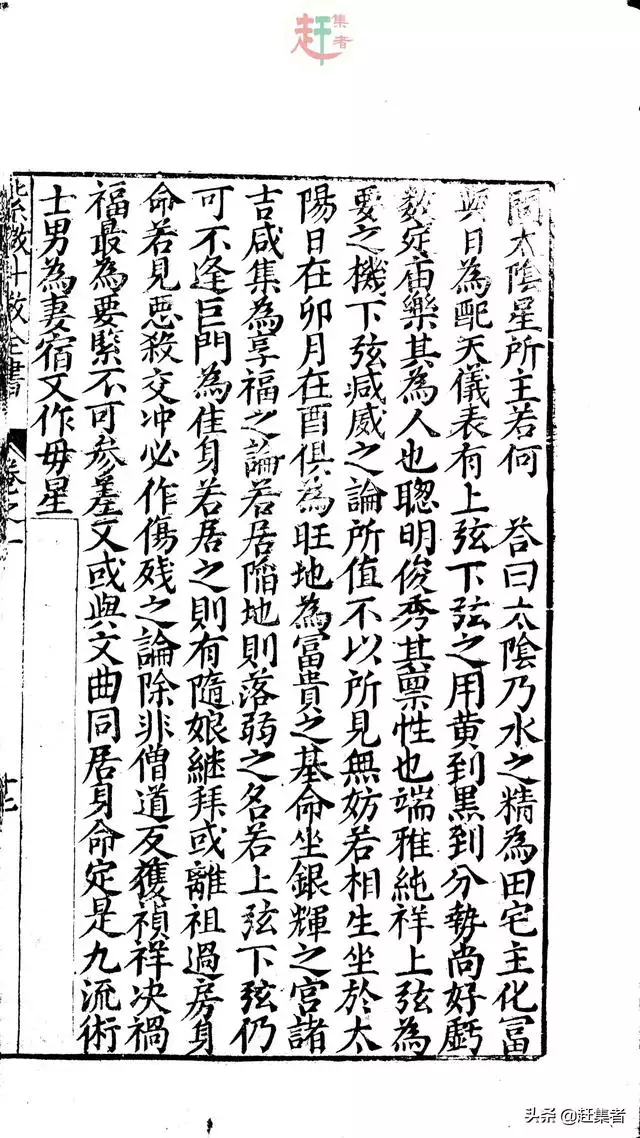 赶集者
問太陰星所主若何　答曰太陰乃水之精為田宅主化冨
與日為配天儀表有上弦下弦之用黄到黒到分勢尚好虧
数定庙樂其為人也聰明俊秀其禀性也端雅純祥上弦為
要之機下弦减威之論所值不以所見無妨若相生坐於太
陽日在卯月在酉俱為旺地為冨貴之基命坐銀輝之宮諸
吉咸集為享福之論若居陷地則落弱之名若上弦下弦仍
可不逢巨門為佳身若居之則有隨娘継拜或離祖過房身
命若見惡殺交冲必作傷残之論除非僧道反獲禎祥决禍
福最為要緊不可参差又或與文曲同居身命定是九流術
士男為妻宿又作毋星
紫微斗数全書 卷之一 十七
头条@赶集者